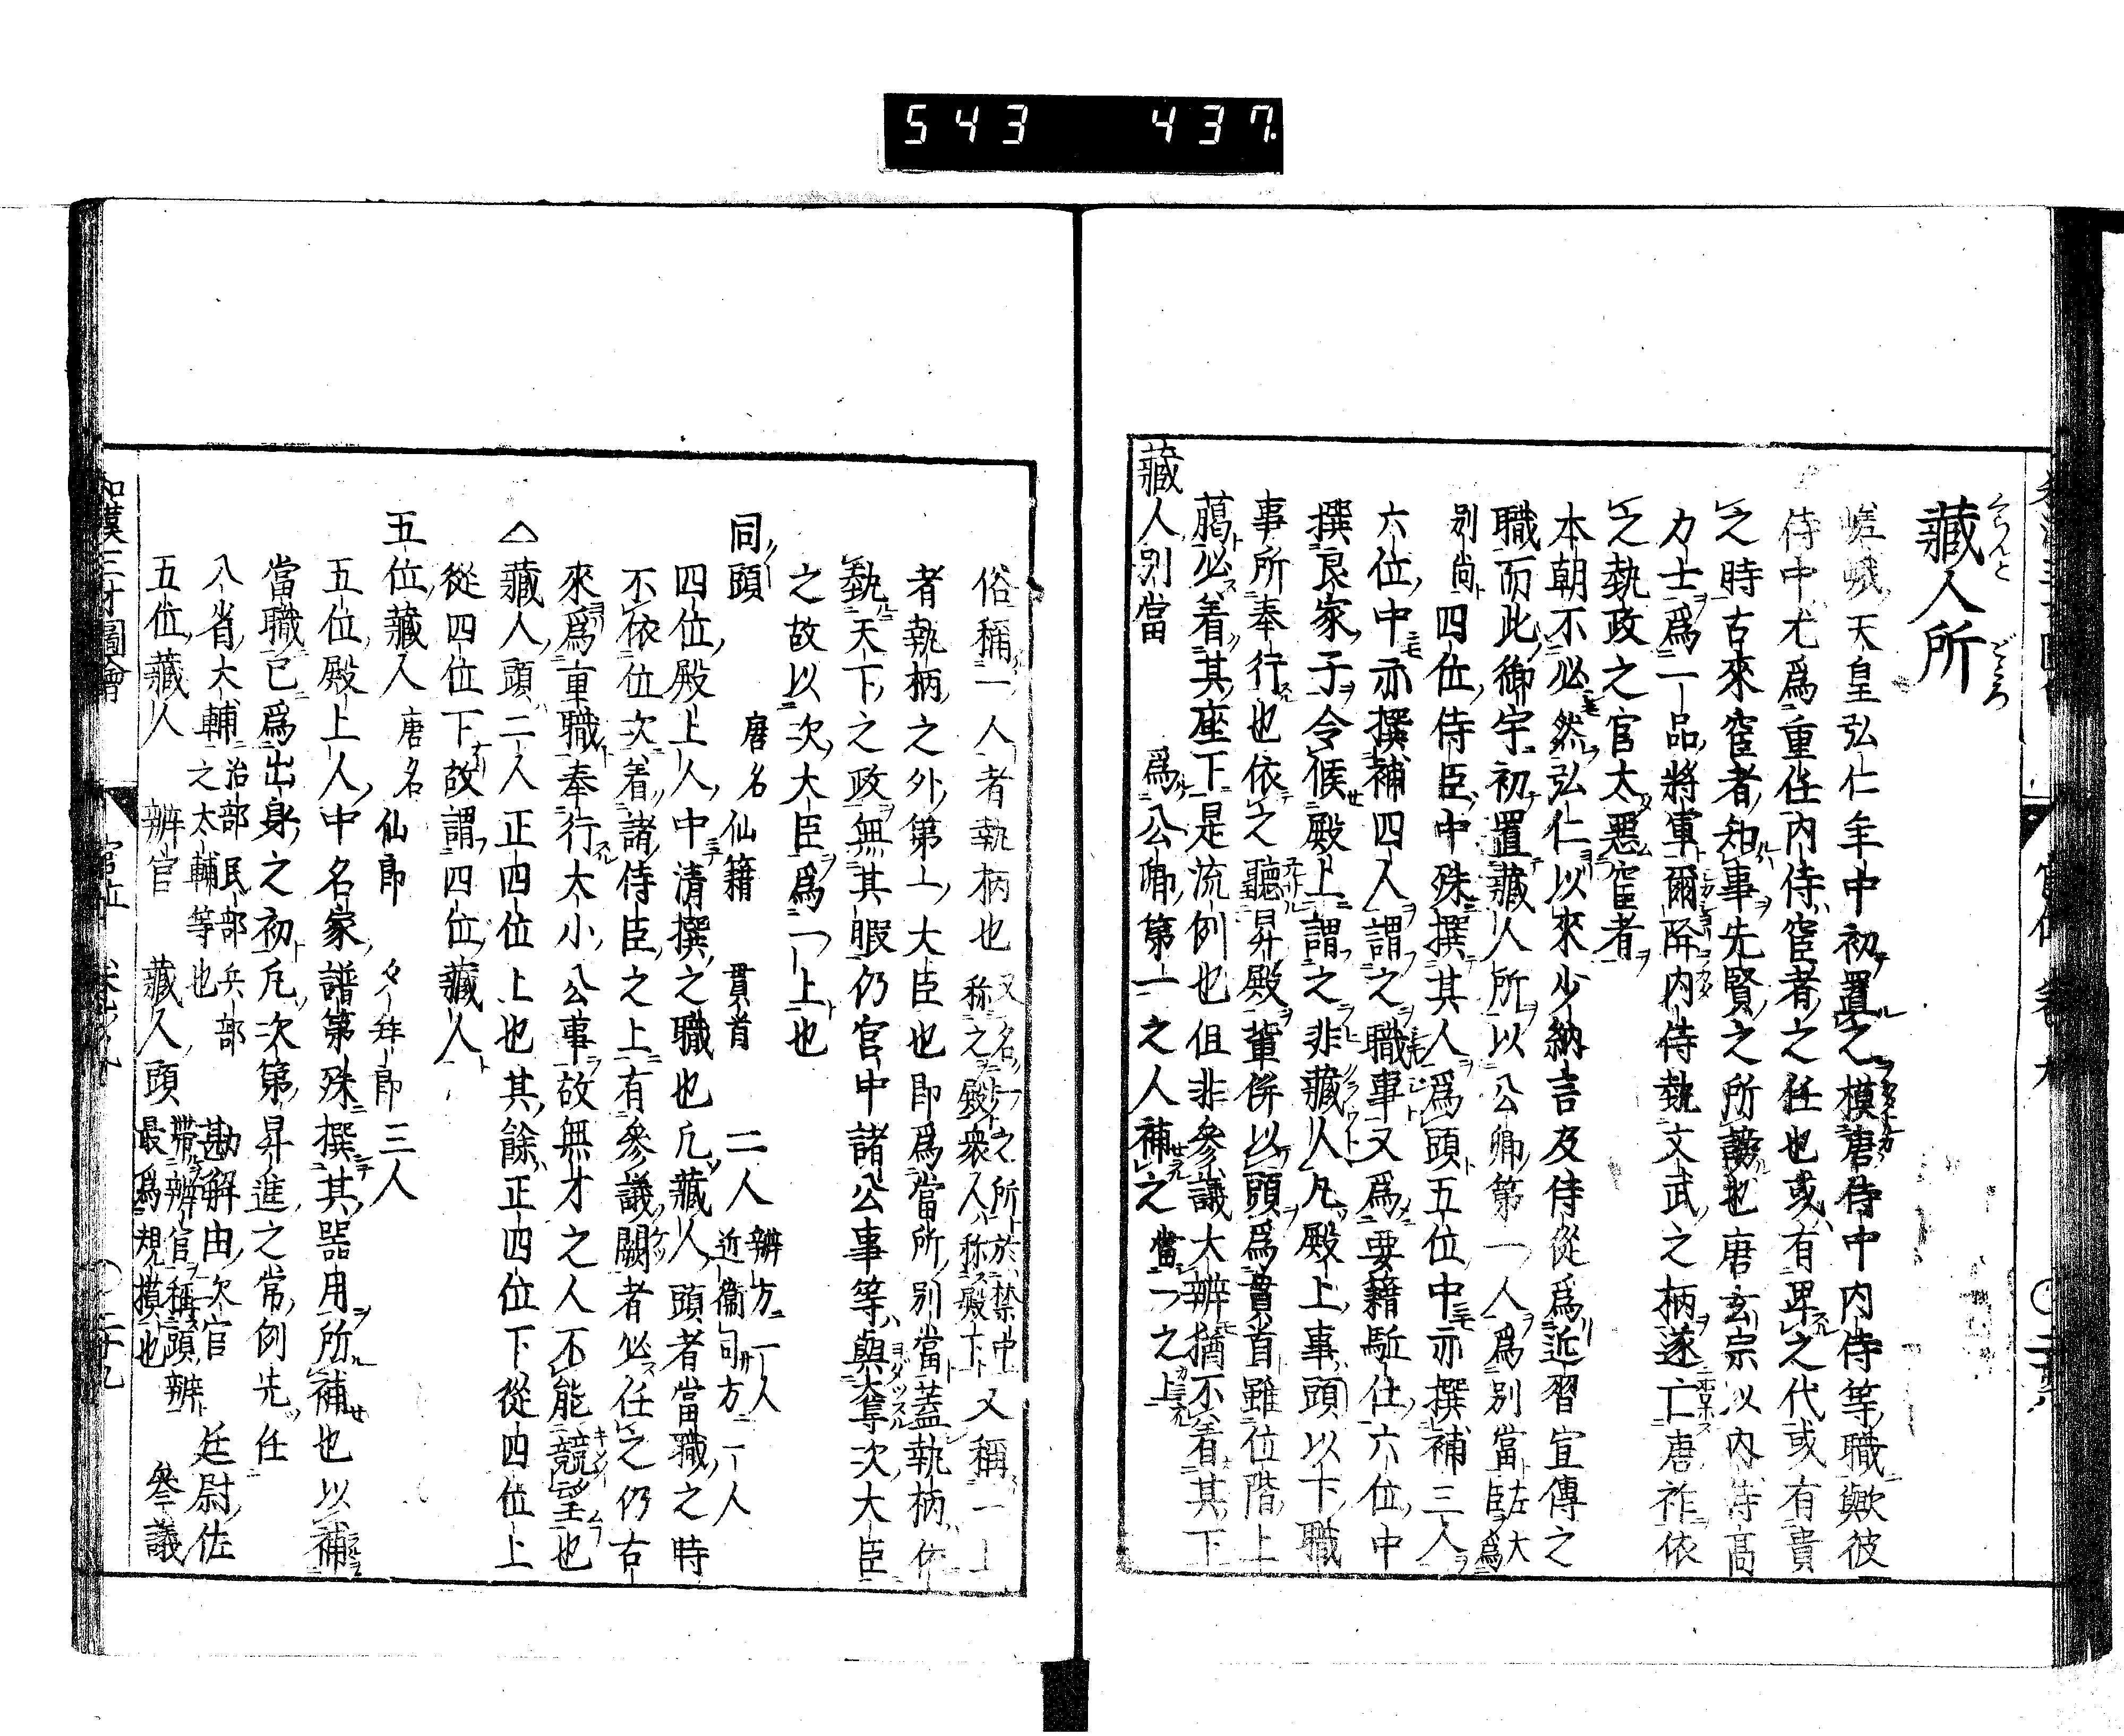 543 437.
藏人所
くらんど
どころ
嵯峨天皇弘仁年中初置之模唐侍中内侍等職歟彼
侍中尤爲重任内侍宦者之任也或有卑之代或有貴
之時古來宦者知事先賢之所謗也唐玄宗以内侍高
力士爲一品將軍爾降内侍執文武之柄遂亡唐祚依
之執政之官太惡宦者
本朝不必然弘仁以來少納言及侍從爲近習宣傳之
職而此御宇初置藏人所以公卿第一人爲別當左大臣爲
別尚四位侍臣中殊撰其人爲頭五位中亦撰補三人
六位中亦撰補四人謂之職事又爲要籍駈仕六位中
撰良家子令候殿上謂之非藏人凡殿上事頭以下職
事所奉行也依之聽昇殿輩併以頭爲貫首雖位階上
﨟必着其座下是流例也但非參議大辨猶不着其下
藏人別當 爲公卿第一之人補之當一之上
俗稱一人者執柄也又名一之所於禁中稱之殿衆人稱殿下又稱一上
者執柄之外第一大臣也即爲當所別當蓋執柄依
執天下之政無其暇仍官中諸公事等與奪次大臣
之故以次大臣爲一上也
同頭 唐名 仙籍 貫首 二人 辨方一人 近衞司方一人
四位殿上人中清撰之職也凡藏人頭者當職之時
不依位次着諸侍臣之上有參議闕者必任之仍古
來爲重職奉行大小公事故無才之人不能競望也
△藏人頭二人正四位上也其餘正四位下從四位上
從四位下故謂四位藏人
五位藏人 唐名 仙郎 夕拜郎 三人
五位殿上人中名家譜第殊撰其器用所補也以補
當職已爲出身之初凡次第昇進之常例先任
八省大輔治部民部兵部之太輔等也 勘解由次官 廷尉佐
五位藏人 辨官 藏人頭帶辨官稱頭辨最爲規摸也 參議
和漢三才圖會 官位 二十九